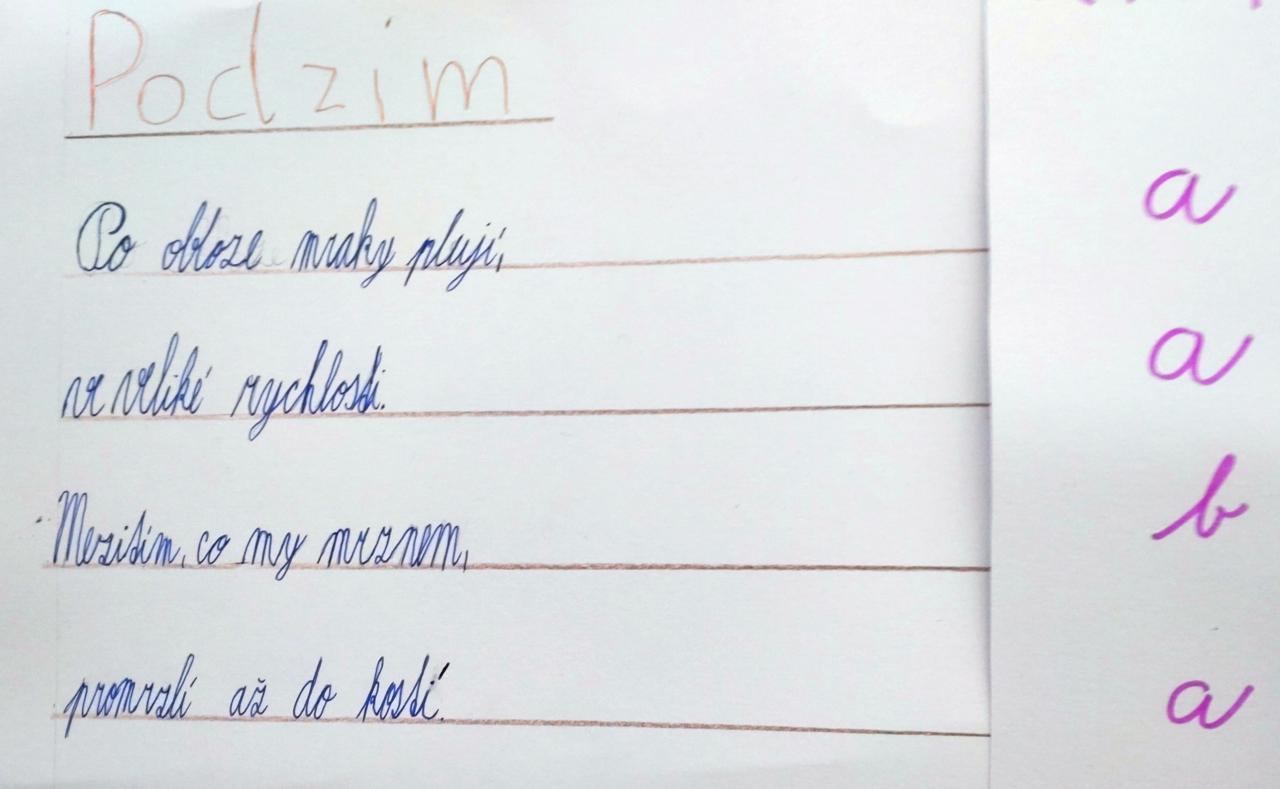 Podzim
Po obloze mraky plují, a
ve veliké rychlosti. a
Mezitím, co my mrznem, b
promrzlí až do kostí. a